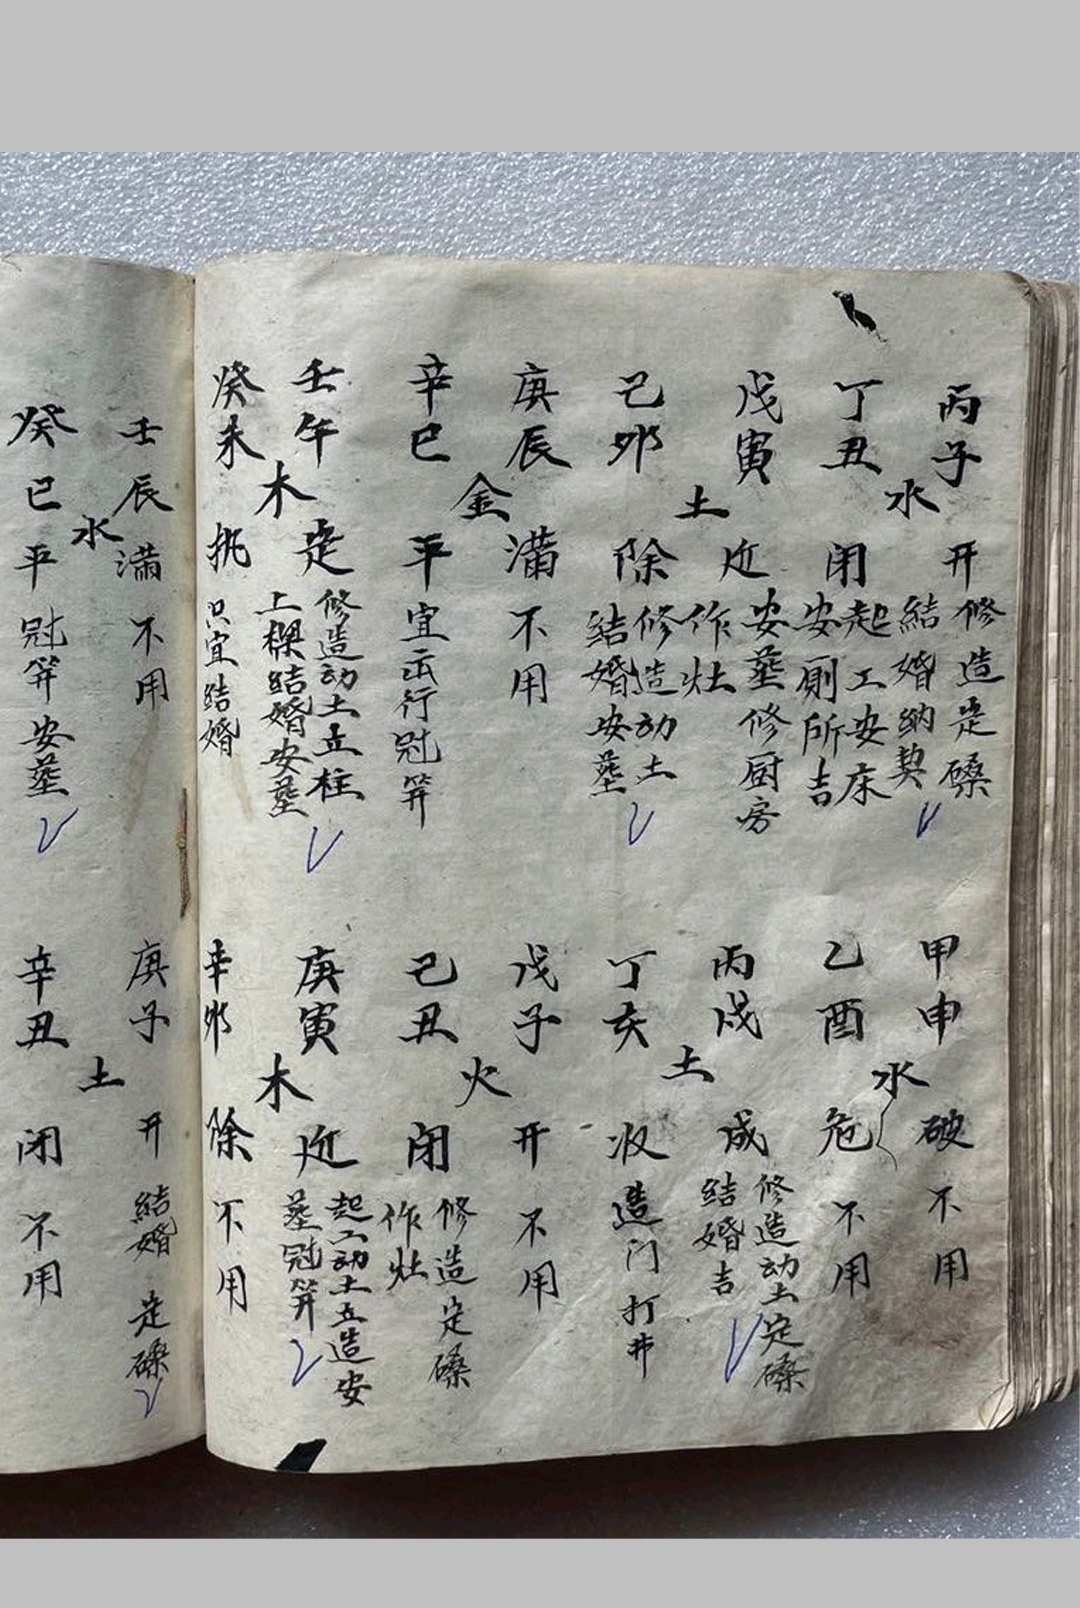 丙子 开 修造定磉
結婚納契
水
丁丑 闭 起工安床
安厠所吉
戊寅 建 安葬修厨房
作灶
土
己卯 除 修造动土
結婚安葬
庚辰 滿 不用
金
辛巳 平 宜出行冠笄
壬午 定 修造动土立柱
上樑結婚安葬
木
癸未 执 只宜結婚
甲申 破 不用
水
乙酉 危 不用
丙戌 成 修造动土定磉
結婚吉
土
丁亥 收 造门打井
戊子 开 不用
火
己丑 闭 修造定磉
作灶
庚寅 建 起工动土立造安
葬冠笄
木
辛卯 除 不用
壬辰 滿 不用
水
癸巳 平 冠笄安葬
庚子 开 結婚 定磉
土
辛丑 闭 不用